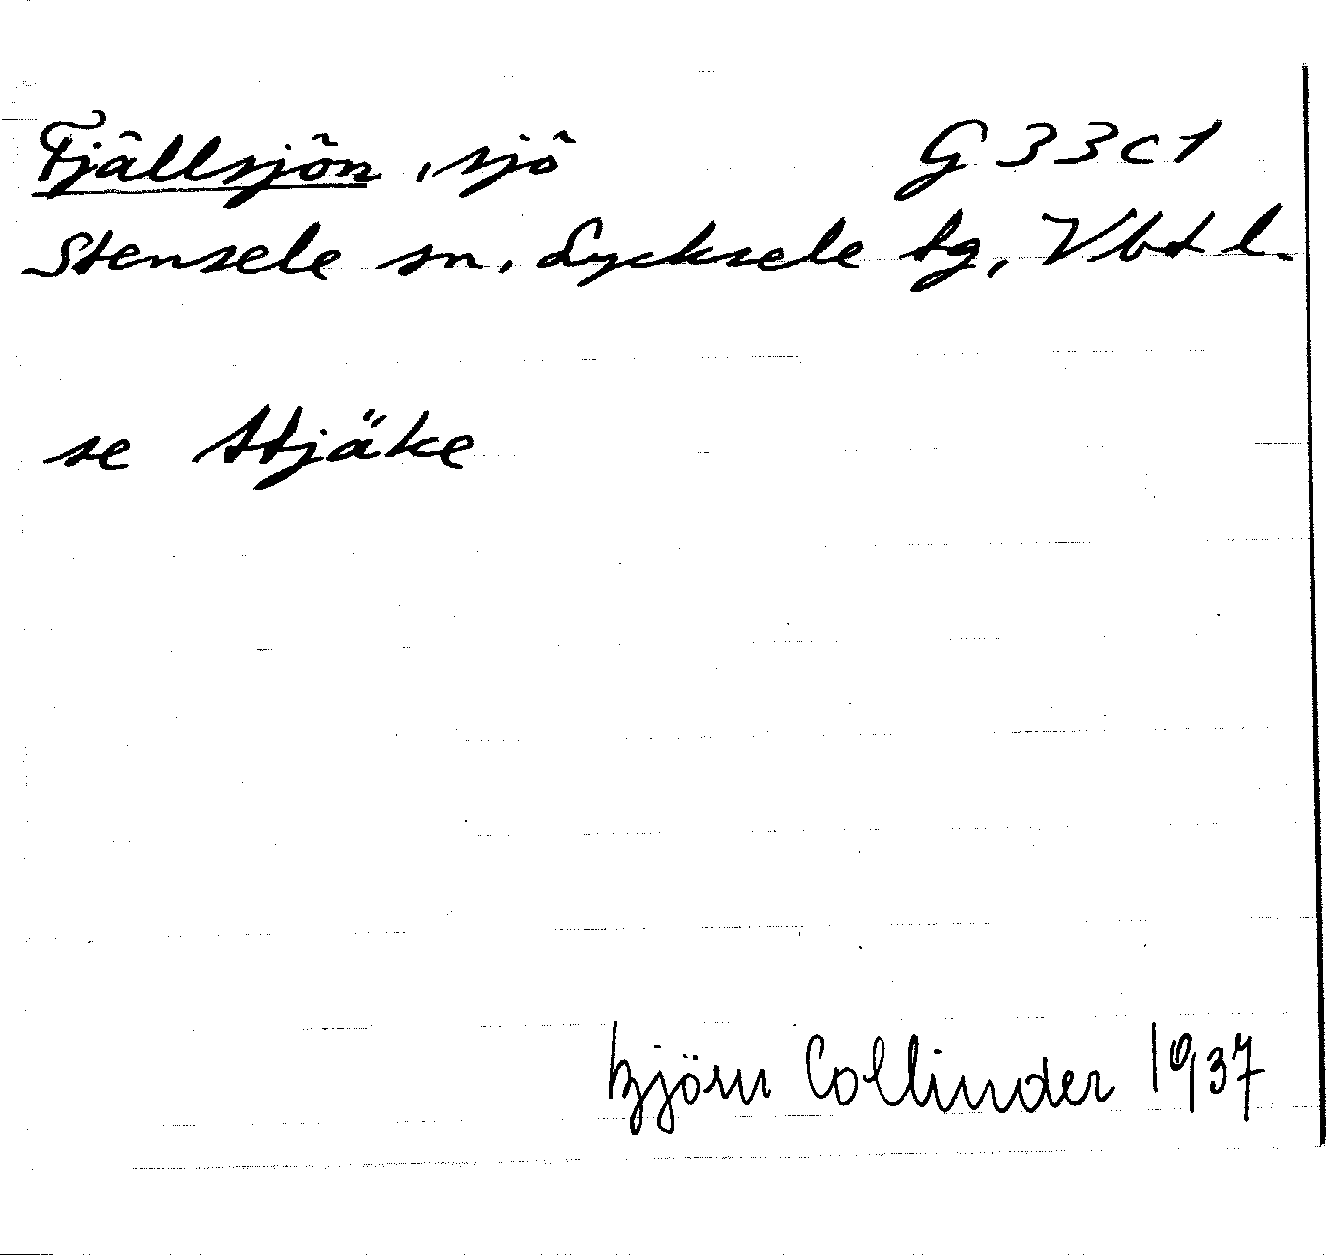 Fjällsjön, sjö G 33 c 1
Stensele sn, Lycksele tg, Vbtl.
se Stjäke
Björn Collinder 1937